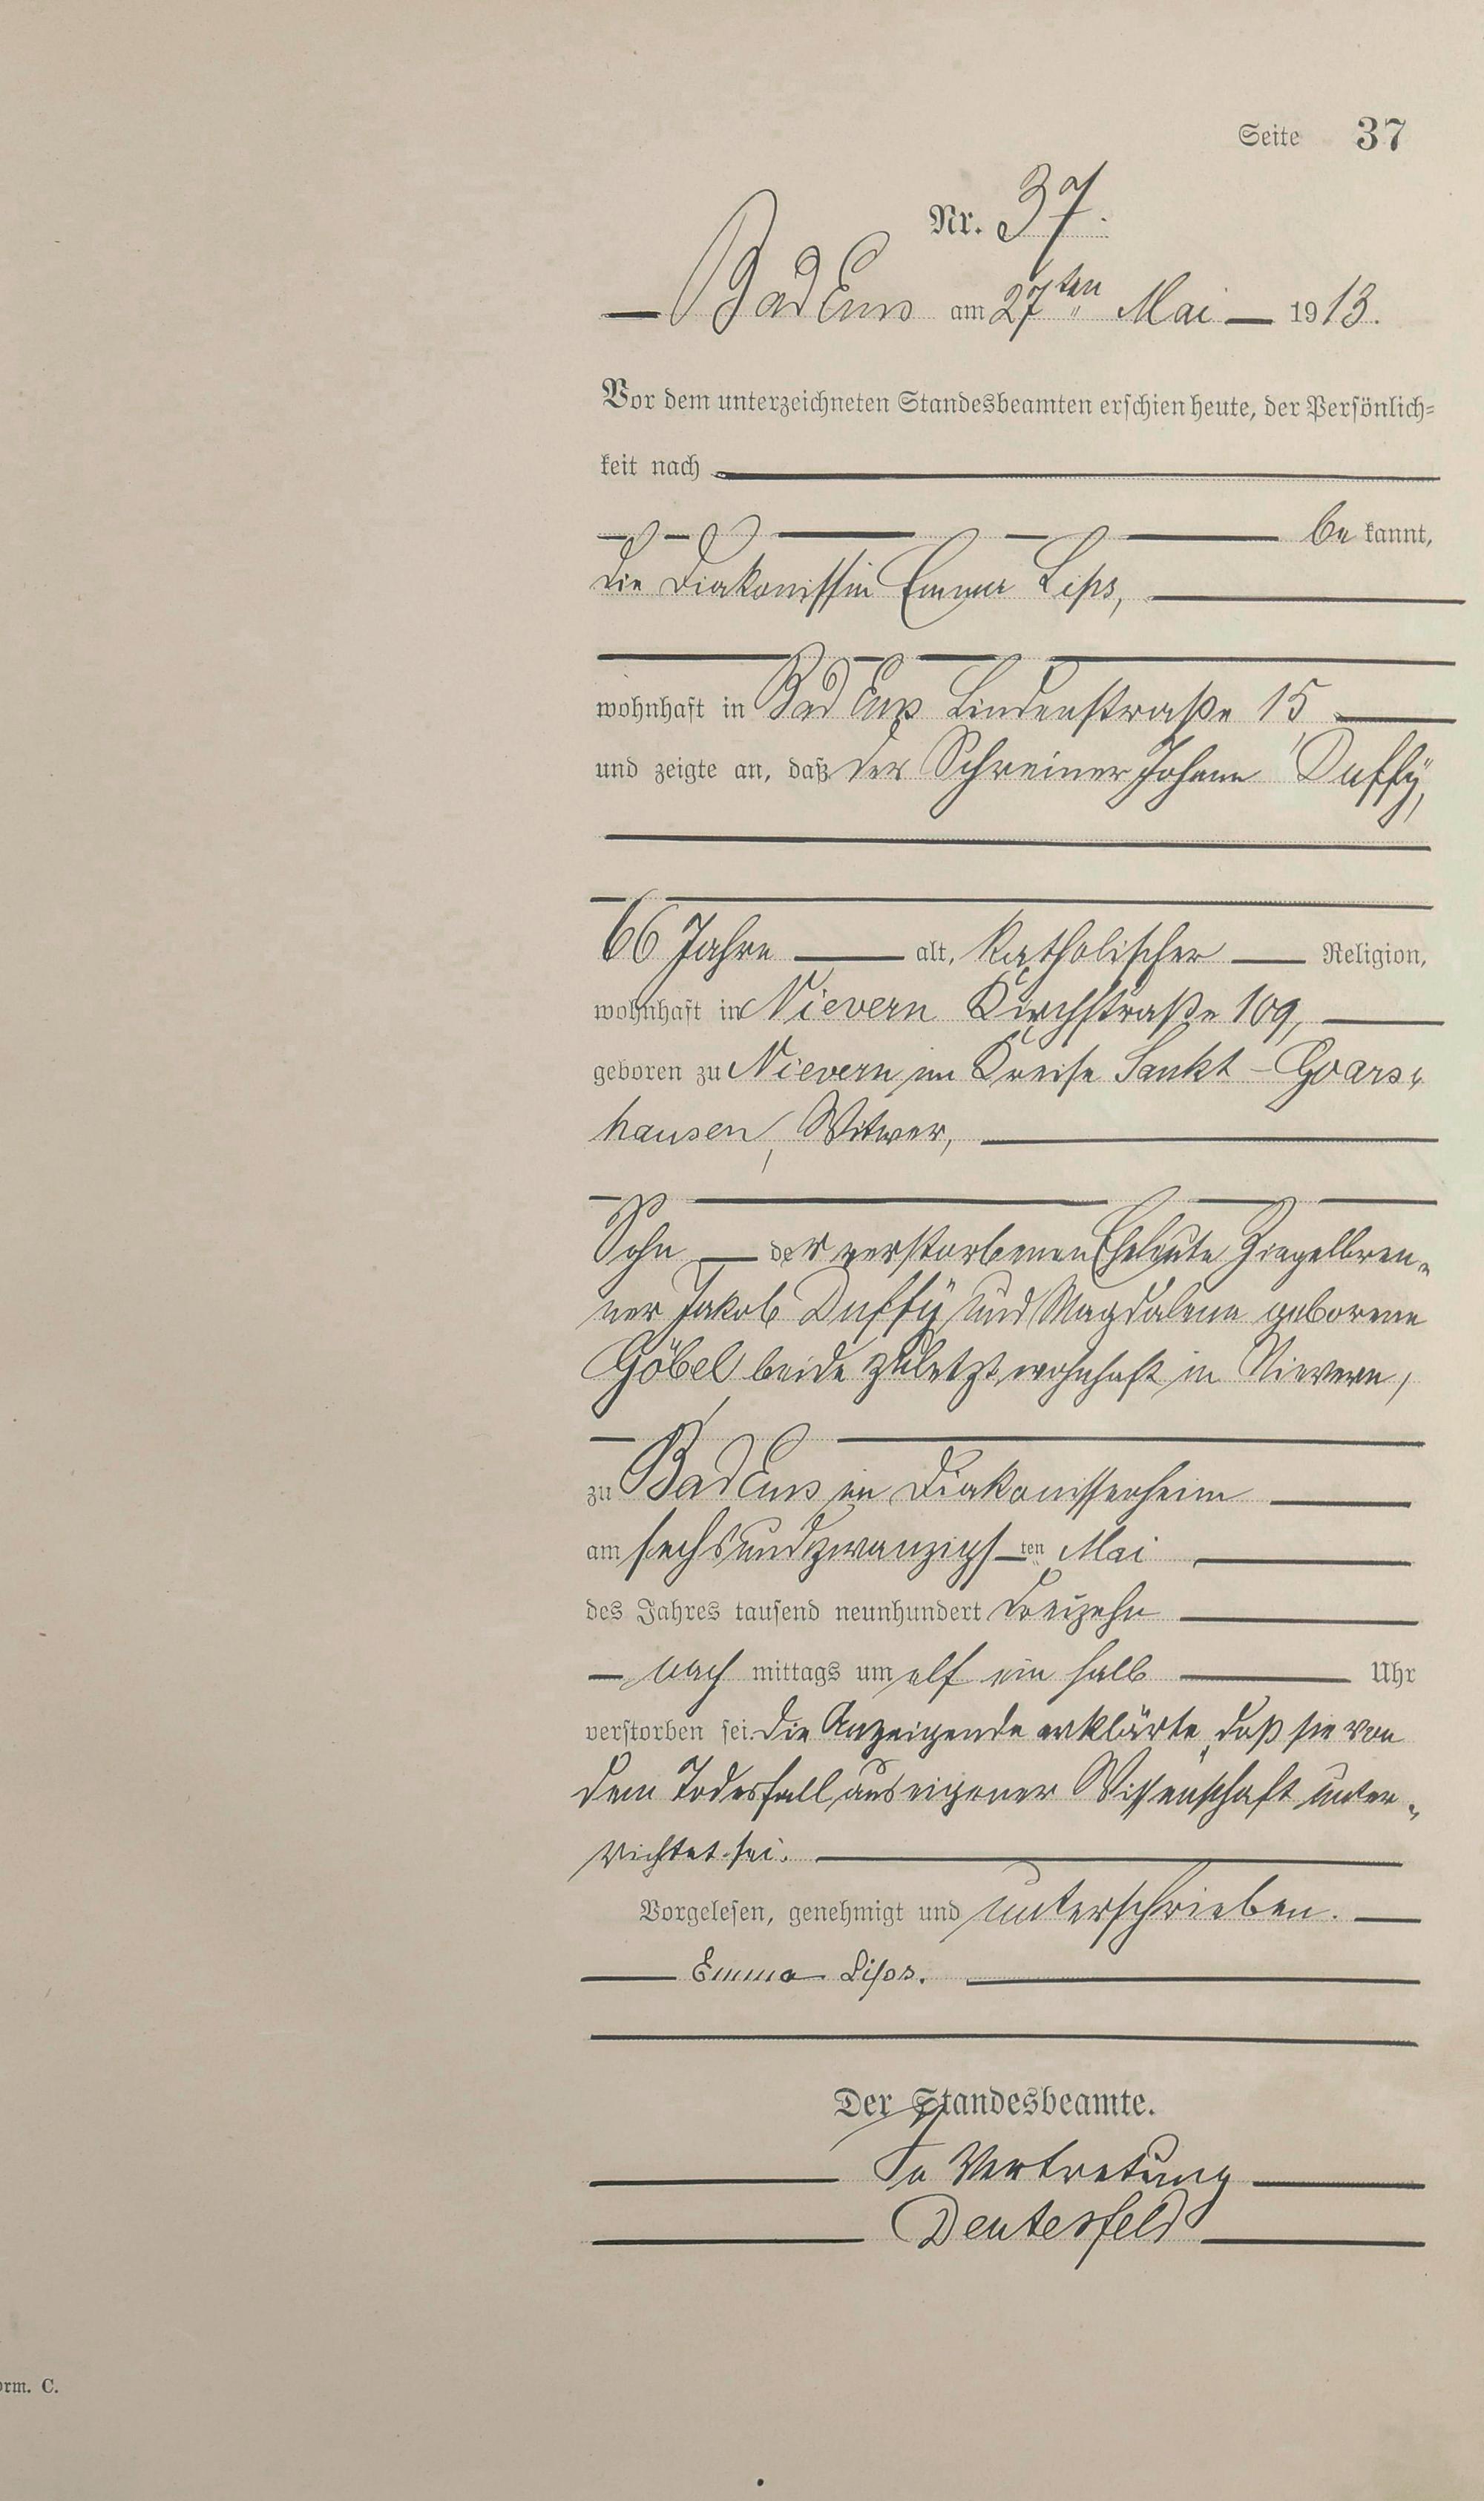 Seite 37
Nr. 37.
Bad Ems am 27ten Mai 1913.
Vor dem unterzeichneten Standesbeamten erschien heute, der Persönlich-
keit nach
be kannt,
die Diakonissin Emma Lips,
wohnhaft in Bad Ems Lindenstraße 15
und zeigte an, daß der Schreiner Johann Duffÿ,
66 Jahre alt, katholischer Religion,
wohnhaft in Nievern Kirchstraße 109,
geboren zu Nievern im Kreise Sankt-Goars-
hausen, Witwer,
Sohn der verstorbenen Eheleute Ziegelbren-
ner Jakob Duffÿ und Magdalena geborene
Göbel beide zuletzt wohnhaft in Nievern,
zu Bad Ems im Diakonissenheim
am sechsundzwanzigsten Mai
des Jahres tausend neunhundert dreizehn
nach mittags um elf ein halb Uhr
verstorben sei. Die Anzeigende erklärte, daß sie von
dem Todesfall aus eigener Wissenschaft unter-
richtet sei.
Vorgelesen, genehmigt und unterschrieben.
Emma Lips.
Der Standesbeamte.
In Vertretung
Deutesfeld
orm. C.